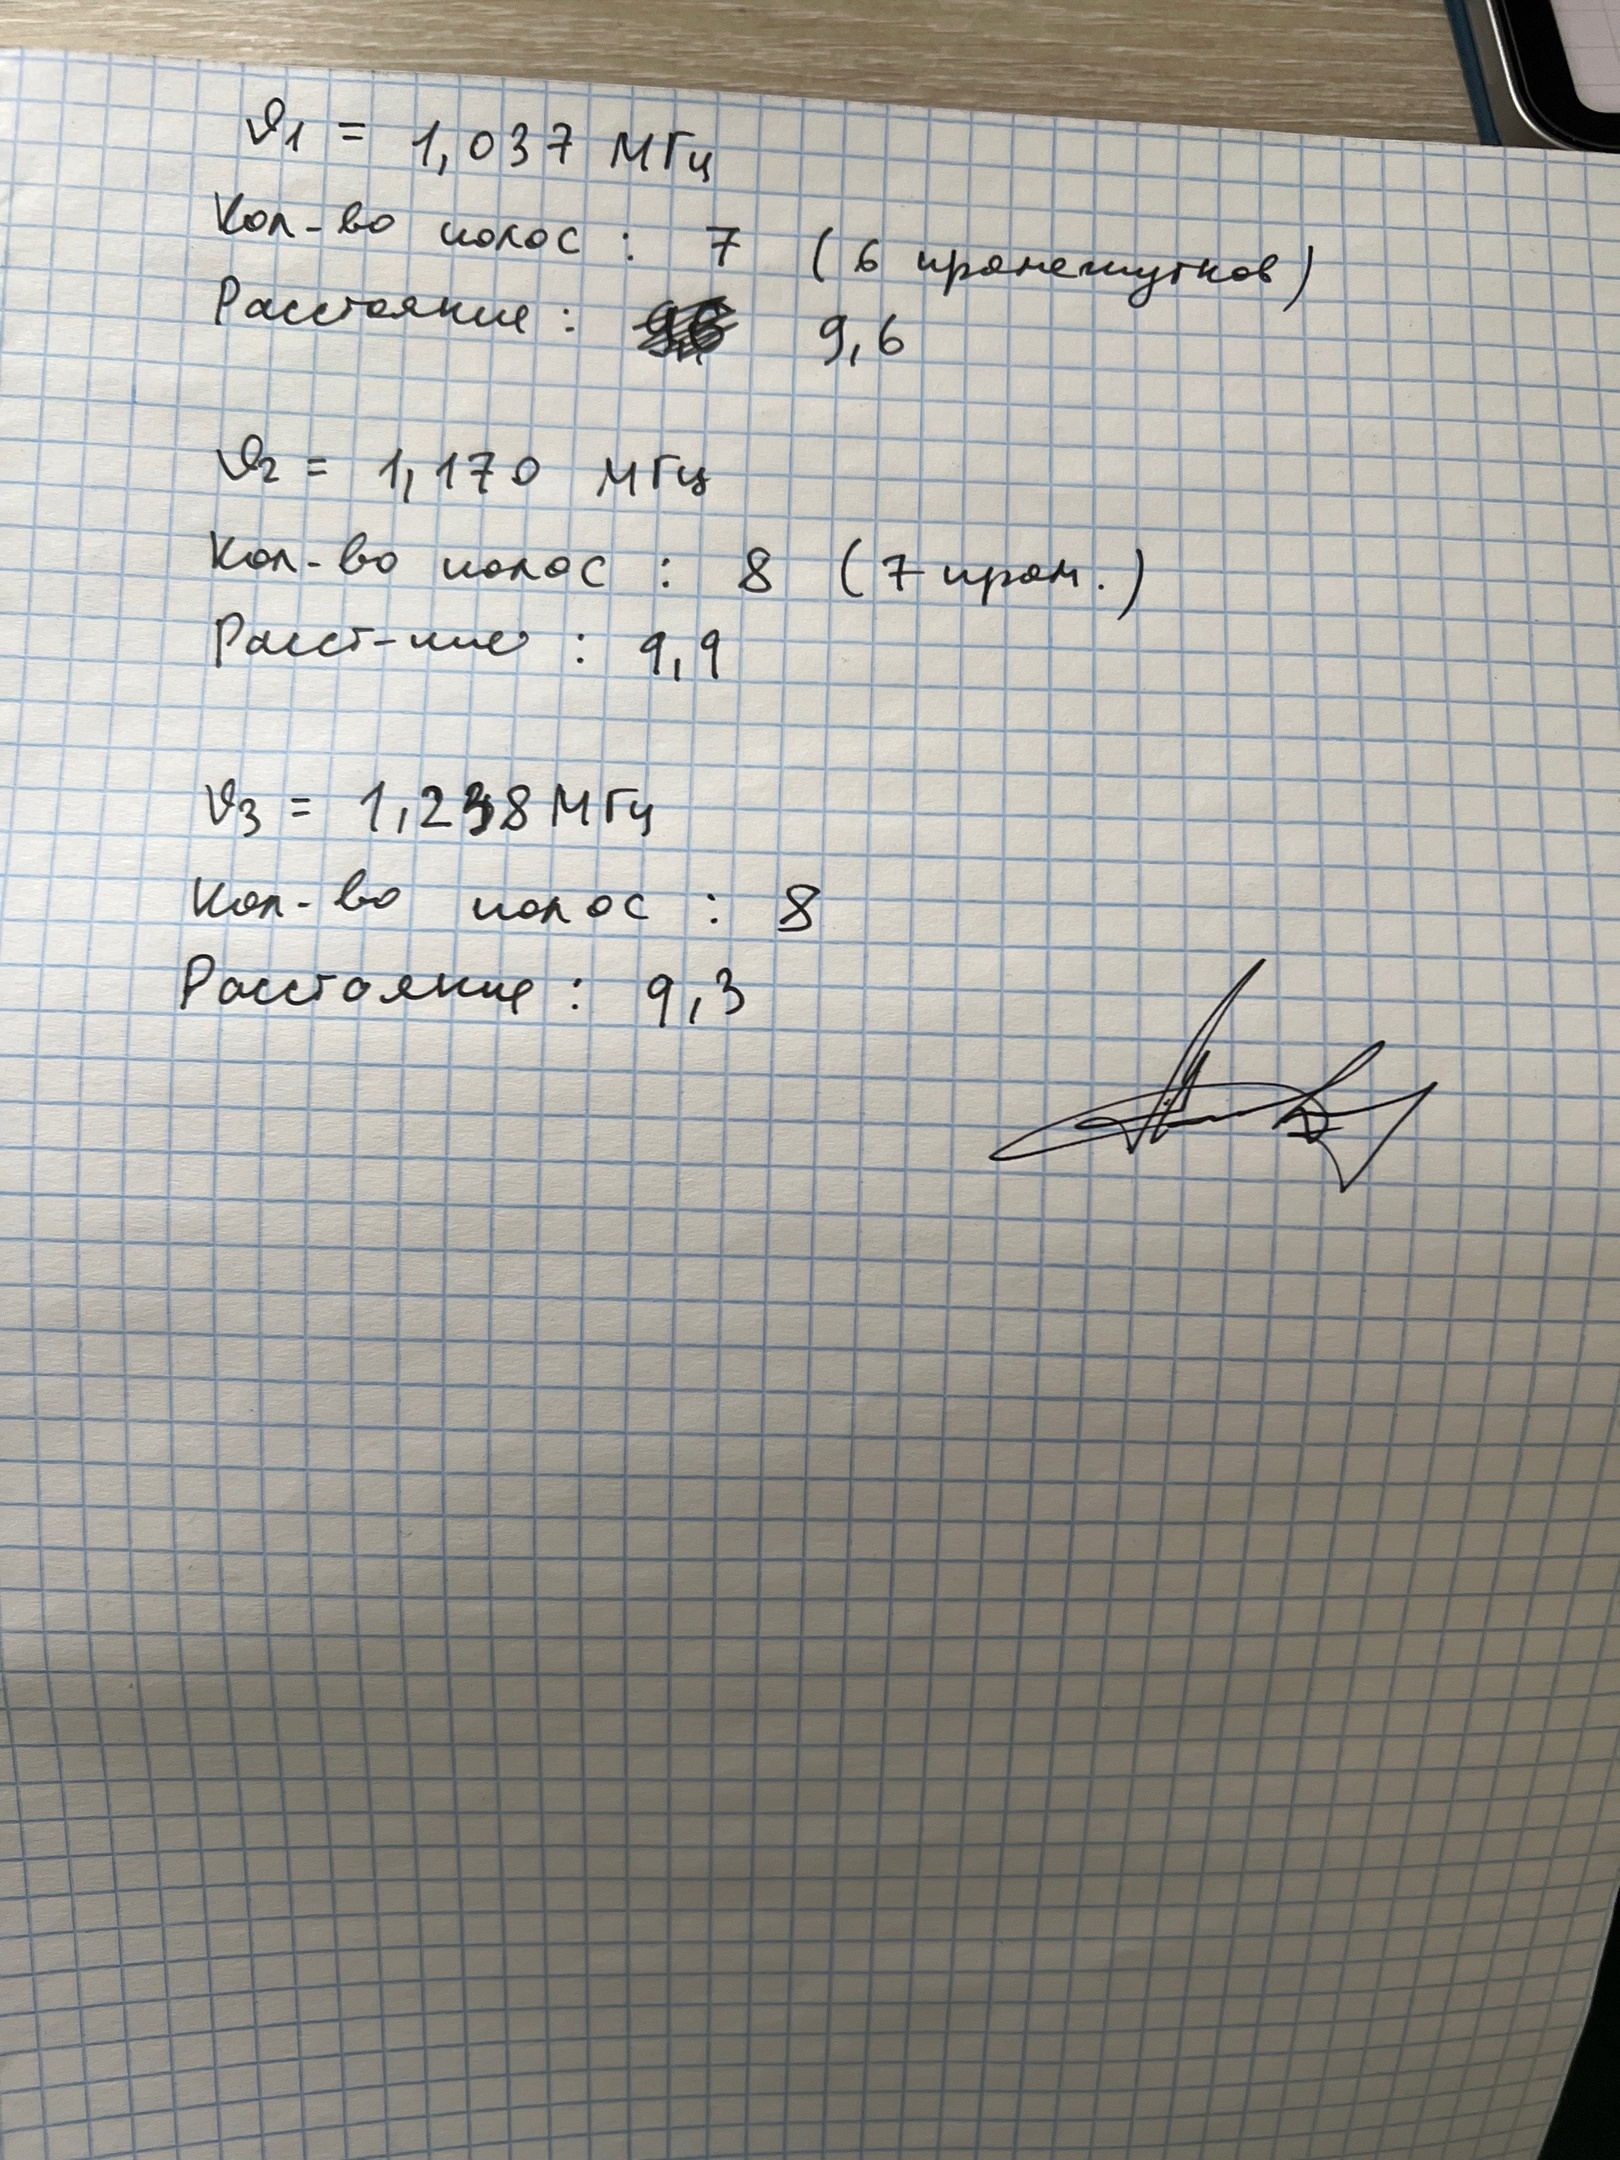 ν1 = 1,037 МГц
Кол-во полос : 7 (6 промежутков)
Расстояние : 9,6
ν2 = 1,170 МГц
Кол-во полос : 8 (7 пром.)
Расст-ние : 9,9
ν3 = МГц
Кол-во полос : 8
Расстояние : 9,3